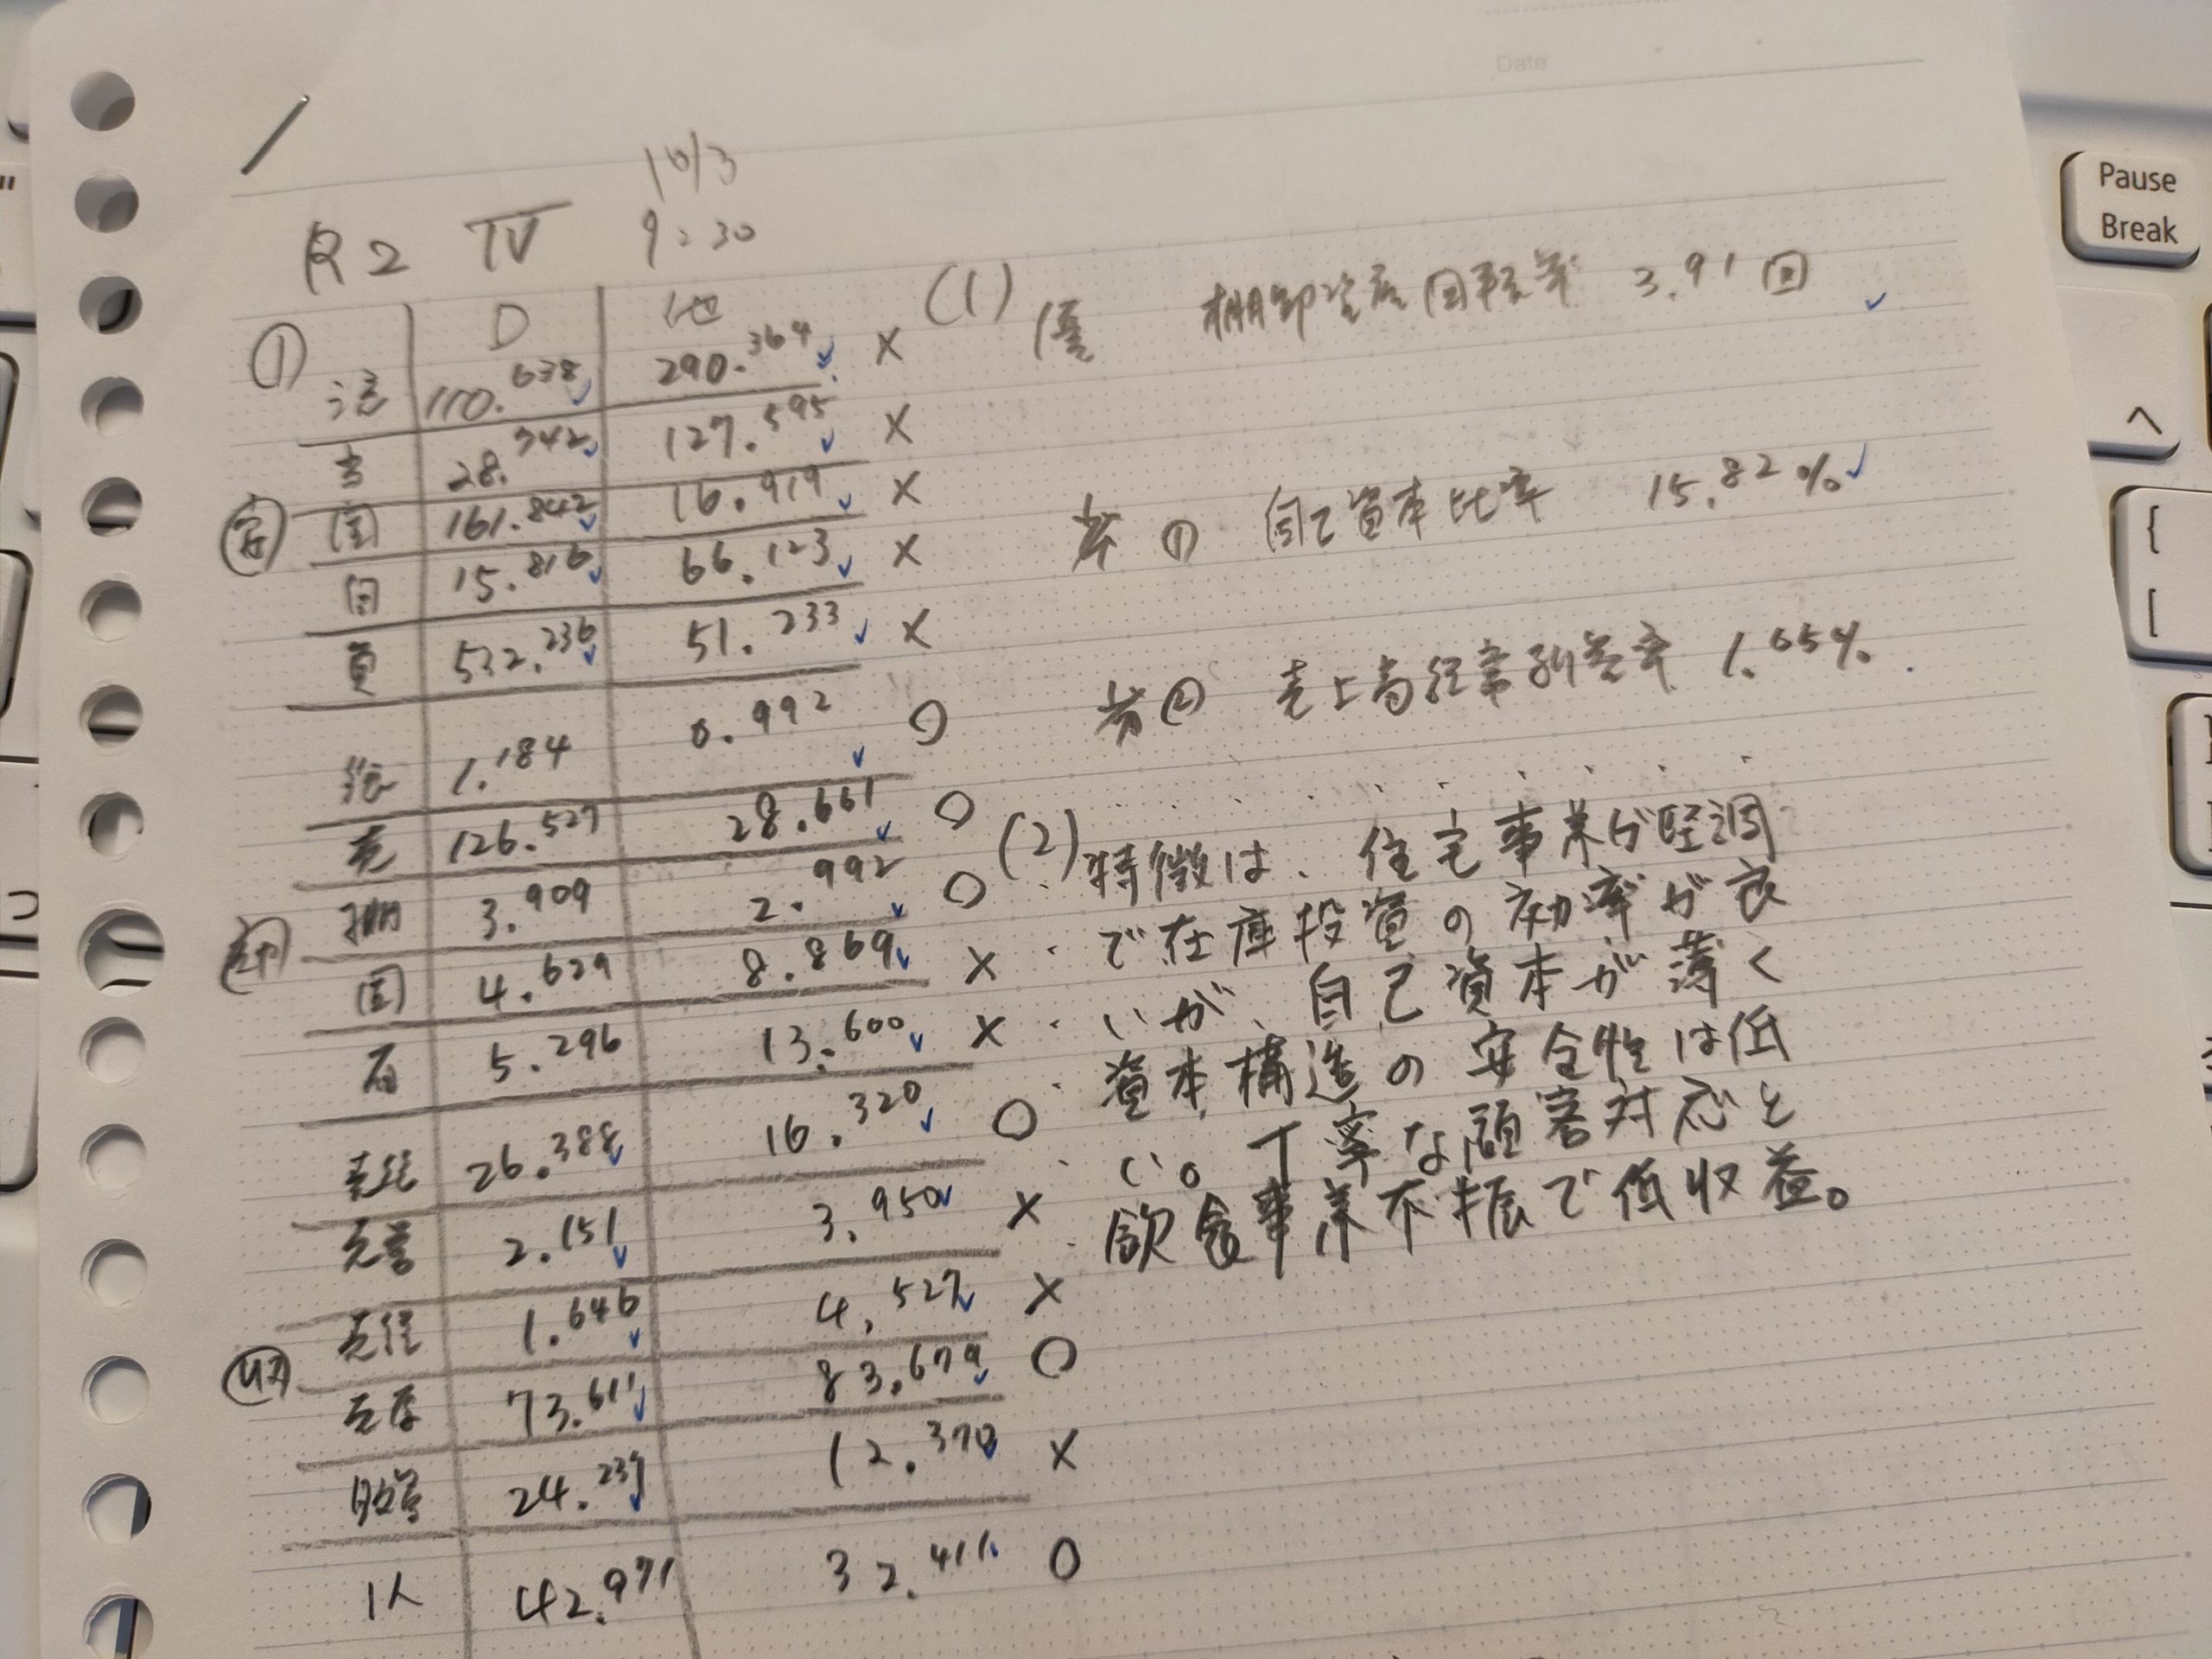 Date
10/3
R2 IV 9:30
① D 他
流 110.638 290.364 ×
当 28.742 127.595 ×
安 固 161.842 16.919 ×
自 15.816 66.123 ×
負 532.236 51.233 ×
総 1.184 0.992 ○
売 126.527 28.661 ○
効 棚 3.909 2.992 ○
固 4.629 8.869 ×
有 5.296 13.600 ×
売総 26.388 16.320 ○
売営 2.151 3.950 ×
収 売経 1.646 4.527 ×
売原 73.611 83.679 ○
販管 24.237 12.370 ×
1人 42.971 32.411 ○
(1) 優 棚卸資産回転率 3.91回
劣① 自己資本比率 15.82%
劣② 売上高経常利益率 1.65%
(2) 特徴は、住宅事業が堅調
で在庫投資の効率が良
いが、自己資本が薄く
資本構造の安全性は低
い。丁寧な顧客対応と
飲食事業不振で低収益。
Pause
Break
へ
{
[